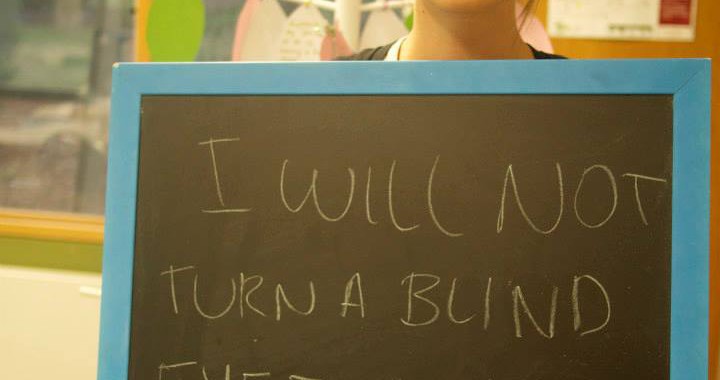 I WILL NOT
TURN A BLIND